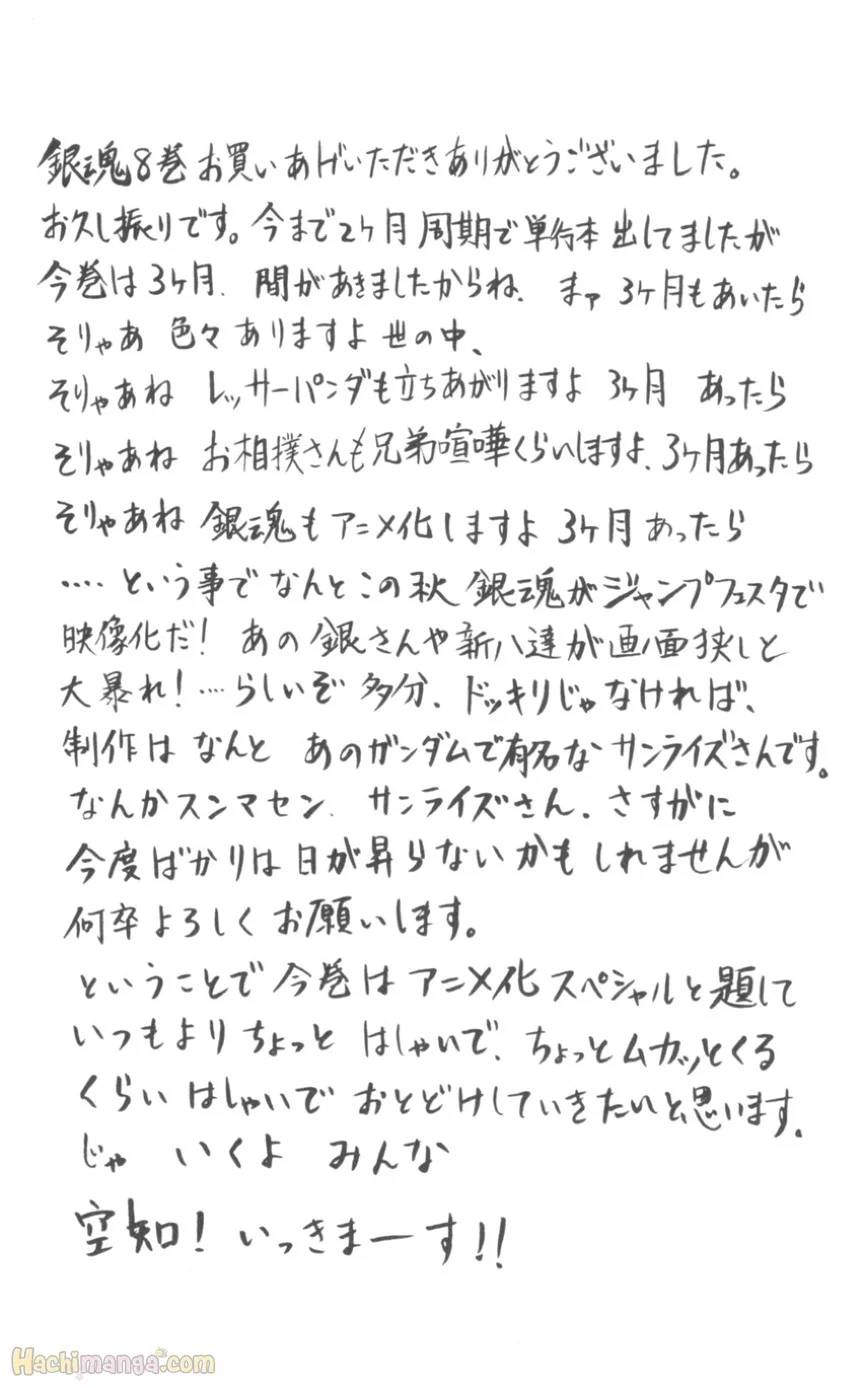 銀魂8巻お買いあげいただきありがとうございました。
お久し振りです。今まで2ヶ月周期で単行本出してましたが
今巻は3ヶ月、間があきましたからね、まァ 3ヶ月もあいたら
そりゃあ 色々ありますよ世の中、
そりゃあね レッサーパンダも立ちあがりますよ 3ヶ月 あったら
そりゃあね お相撲さんも兄弟喧嘩くらいしますよ、3ヶ月あったら
そりゃあね 銀魂もアニメ化しますよ 3ヶ月あったら
‥‥という事でなんとこの秋 銀魂がジャンプフェスタで
映像化だ! あの銀さんや新八達が画面狭しと
大暴れ!…らしいぞ 多分、ドッキリじゃなければ、
制作は なんと あのガンダムで有名なサンライズさんです。
なんかスンマセン、サンライズさん、さすがに
今度ばかりは日が昇らないかもしれませんが
何卒よろしくお願いします。
ということで今巻はアニメ化スペシャルと題して
いつもよりちょっと はしゃいで、ちょっとムカッとくる
くらいはしゃいでおとどけしていきたいと思います、
じゃ いくよ みんな
空知! いっきまーす!!
Hachimanga.com